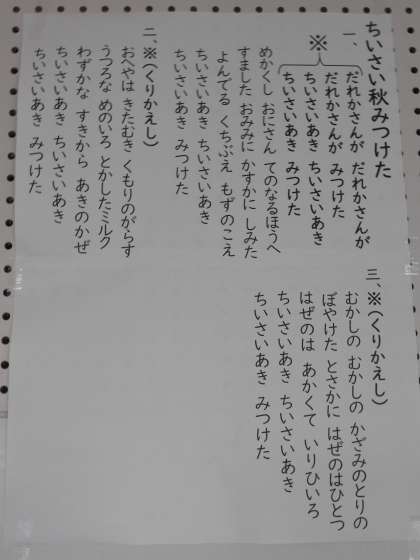 ちいさい秋みつけた
一、
※
だれかさんが だれかさんが
だれかさんが みつけた
ちいさいあき ちいさいあき
ちいさいあき みつけた
めかくし おにさん てのなるほうへ
すました おみみに かすかに しみた
よんでる くちぶえ もずのこえ
ちいさいあき ちいさいあき
ちいさいあき みつけた
二、※（くりかえし）
おへやは きたむき くもりのがらす
うつろな めのいろ とかしたミルク
わずかな すきから あきのかぜ
ちいさいあき ちいさいあき
ちいさいあき みつけた
三、※（くりかえし）
むかしの むかしの かざみのとりの
ぼやけた とさかに はぜのはひとつ
はぜのは あかくて いりひいろ
ちいさいあき ちいさいあき
ちいさいあき みつけた